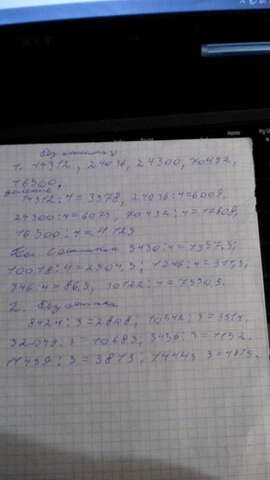 Без остатка,
1. 14312, 24036, 24300, 70432,
16500,
14312:4=3578, 24036:4=6009,
24300:4=6075, 70432:4=17608,
16500:4=4125
:4=1357,5;
10018:4=2504,5; 1246:4=311,5
346:4=86,5, 30122:4=7530,5.
2. Без остатка
8424:3=2808, 10542:3=3514,
32049:3=10683, 3456:3=1152.
11439:3=3813, 14445:3=4815.